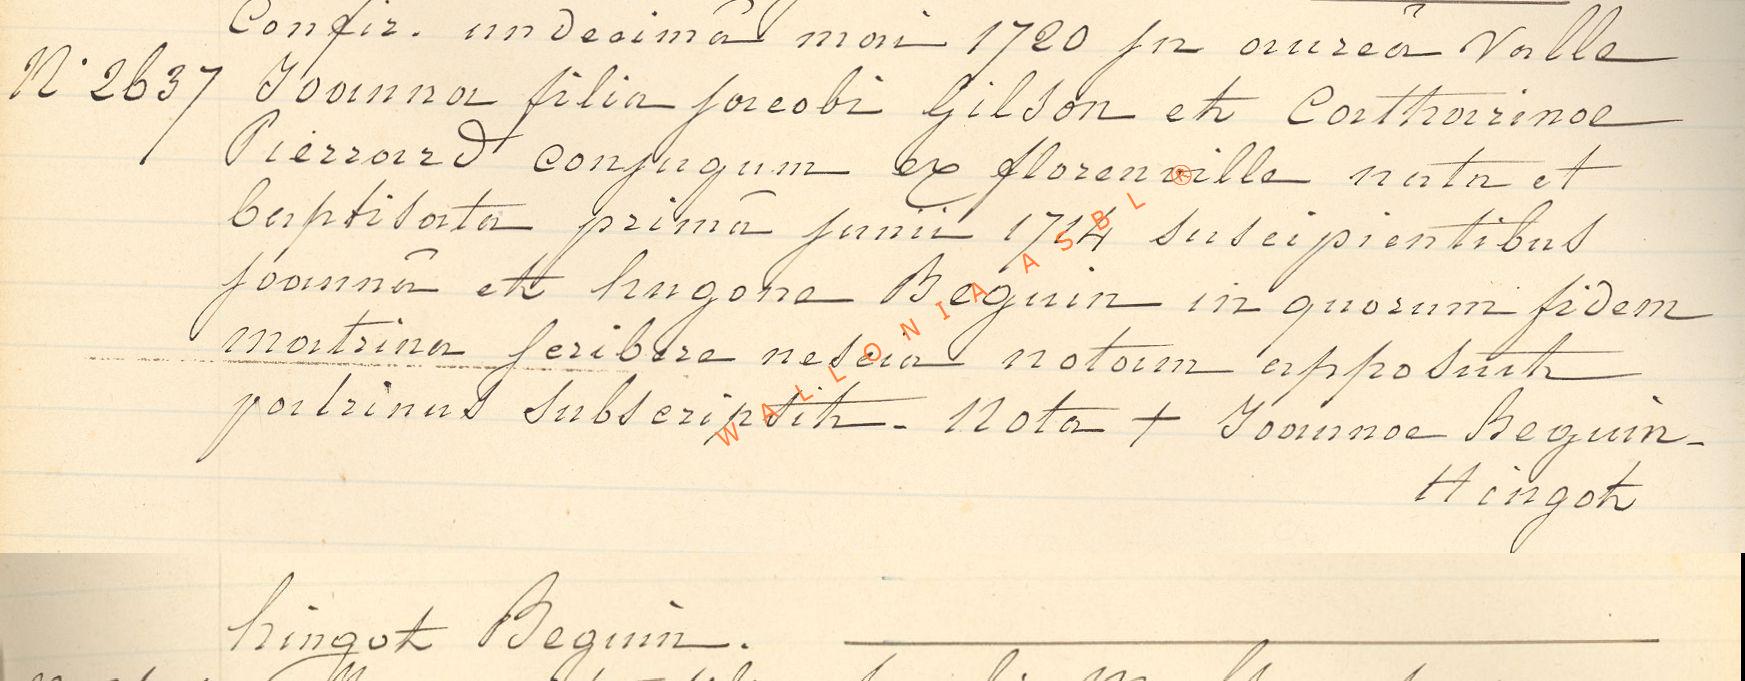 Confir. undecimâ maii 1720 in aureâ valle
N° 2637 Joanna filia jacobi Gilson et Catharinae
Pierrard conjugum ex florenville nata et
baptisata primâ junii 1714 suscipientibus
joannâ et hugone Beguin in quorum fidem
matrina scribere nescia notam apposuit
patrinus subscripsit. Nota + Joannae Beguin-
Hingot
hingot Beguin.
WALLONIA ASBL ®